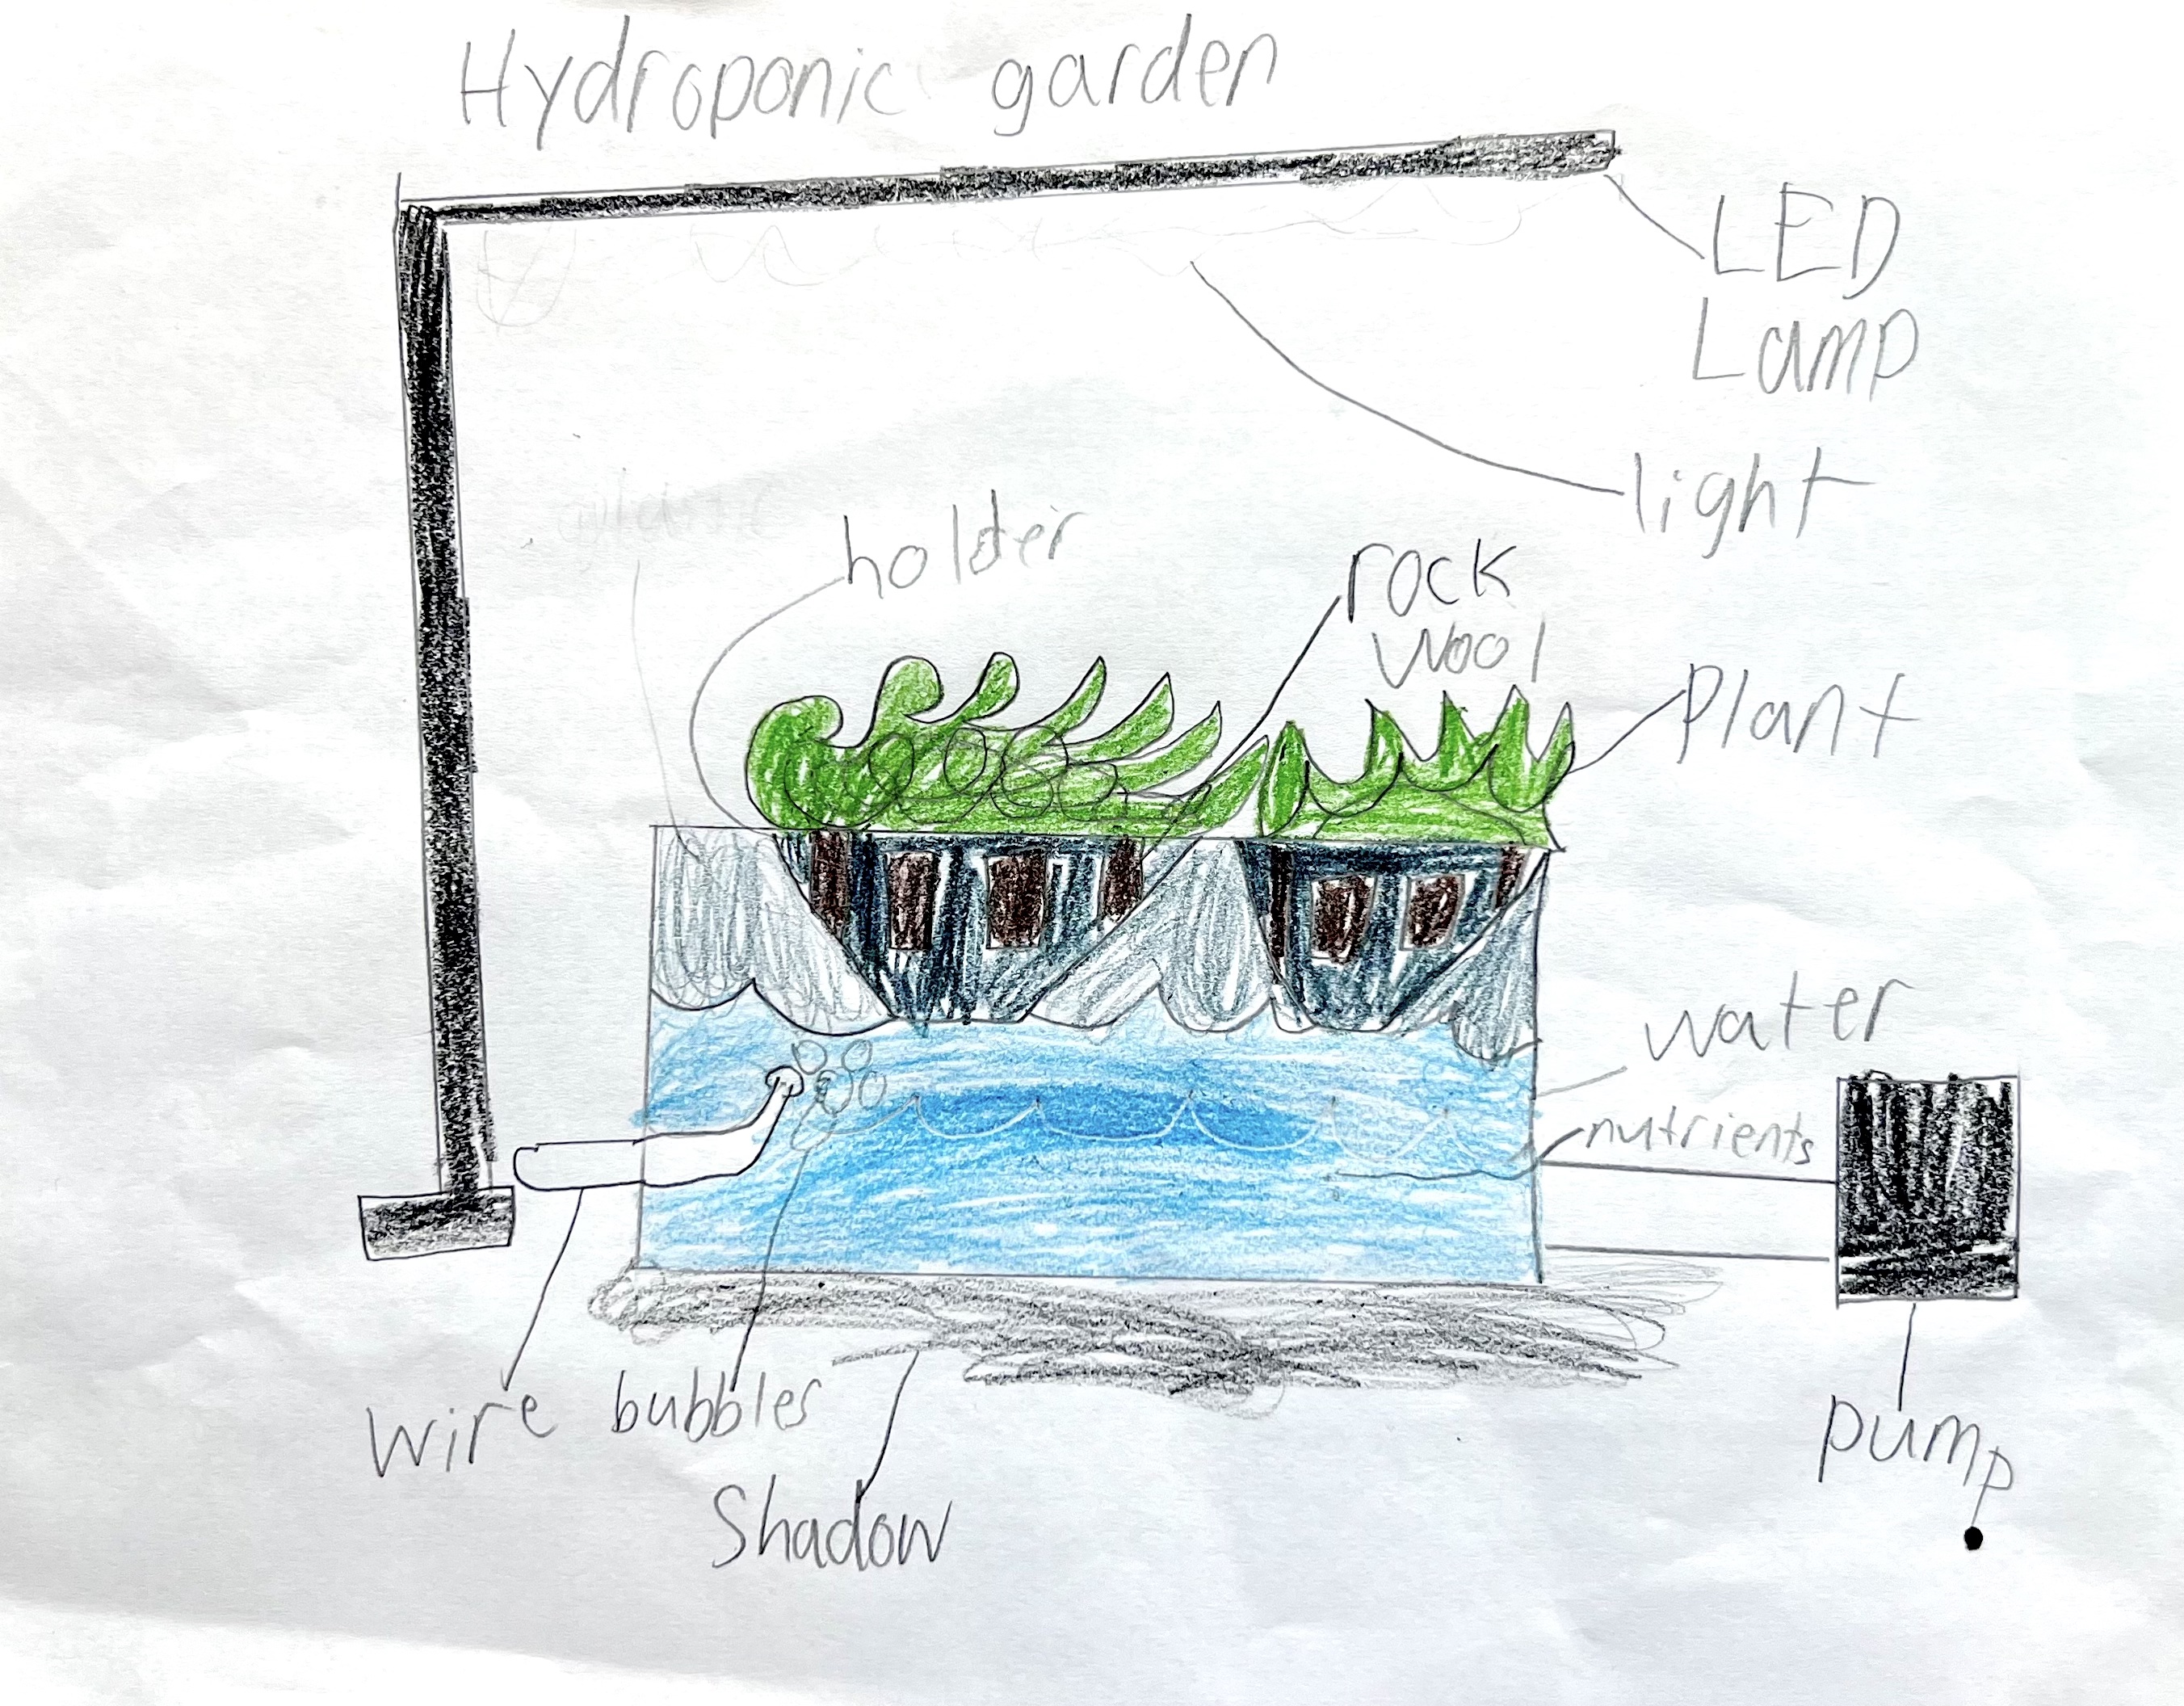 Hydroponic garden
LED
Lamp
light
holder
rock
wool
Plant
water
nutrients
wire
bubbles
Shadow
pump